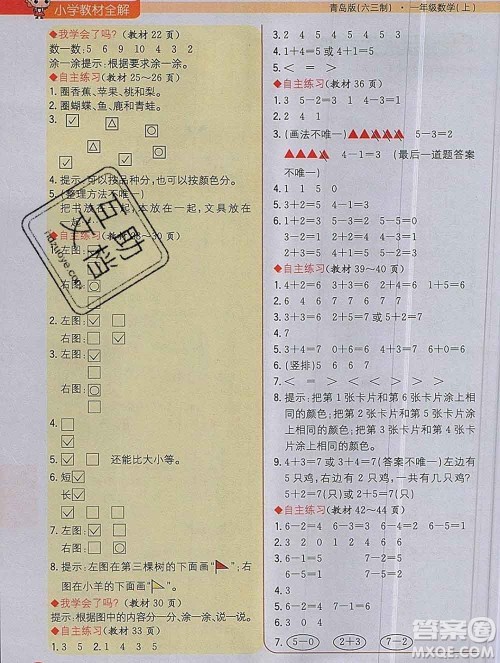 小学教材全解
青岛版(六三制)·一年级数学(上)
◆我学会了吗?(教材 22 页)
数一数:5 6 9 10 2 4
涂一涂提示:根据要求涂一涂。
◆自主练习(教材 25~26 页)
1. 圈香蕉、苹果、桃和梨。
2. 圈蝴蝶、鱼、鹿和青蛙。
3.
4. 提示:可以按品种分,也可以按颜色分。
5. (整理方法不唯一)
把书放在一起,本放在一起,文具放在
一起。
◆自主练习
1. 左图:
右图:
2. 左图:
右图:
3. 左图:
右图:
4.
5. 还能比大小等。
6. 短
长
7. 左图:
右图:
8. 提示:左图在第三棵树的下面画“ ”;右
图在小羊的下面画“ ”。
◆我学会了吗?(教材 30 页)
提示:根据图中的内容分一分、涂一涂、说一说。
◆自主练习(教材 33 页)
3. 2 4 5 1 3 4
4. 1+4=5 或 4+1=5
5. < = >
◆自主练习(教材 36 页)
1. 3 5-2=3 1 4-3=1
2. 4
3. (画法不唯一) 5-3=2
4-1=3 (最后一道题答案
不唯一)
4. 1 1 5 0
5. 2
6. 0+2=2 3-3=0 5-5=0
3+1=4 5-1=4 5-2=3
◆自主练习(教材 39~40 页)
1. 3 6 1+6=7 6+1=7
2. 6 4 7 7 6 7
3. 2+5=7 或 5+2=7
4. 7
5. 3+4=7 0+6=6 4+3=7 6+0=6
6. (竖排)
7. < = > = < >
8. 提示:把第 1 张卡片和第 6 张卡片涂上相
同的颜色;把第 2 张卡片和第 4 张卡片
涂上相同的颜色;把第 3 张卡片和第 5
张卡片涂上相同的颜色。
9. 4+3=7 或 3+4=7(答案不唯一) 左边有
5 只鸡,右边有 2 只鸡,一共有几只鸡?
5+2=7(只)或 2+5=7(只)
◆自主练习(教材 42~44 页)
1. 6-2=4 6-3=3 6-4=2 6-0=6
2. 3 2 0 1 2 4 6 6
3. 4
4. 6-1=5 7-2=5
5. 6-5=1 7-5=2
6. < > = = < >
7. 5-0 2+3 7-2
互助文档
答案圈
MXQE.COM